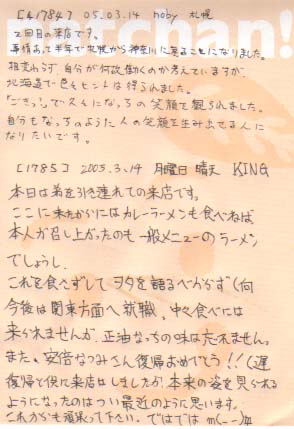 natchan!
[4784] 05.03.14 noby 札幌
2回目の来店です。
事情あって半年で札幌から神奈川に戻ることになりました。
相変わらず、自分が何故働くのか考えていますが
北海道で色々ヒントは得られました。
スズにいなりの笑顔を観られました。
自分もなっちのように人の笑顔を生み出せる人に
なりたいです。
[1785] 2005.3.14 月曜日 晴天 KING
本日は弟を引き連れての来店です。
ここに来たからにはカレーラーメンも食べねば
本人が召し上がったのも一般メニューのラーメン
でしょうし、
これを食さずして ヲタを語るべからず(何
今後は関東方面へ就職、中々食べには
来られませんが、正油なっちの味は忘れません。
また、安倍なつみさん復帰おめでとう!!(遅
復帰と供に来店はしましたが、本来の姿を見られる
ようになったのはつい最近のように思います。
これからも頑張って下さい。ではでは m(--)m